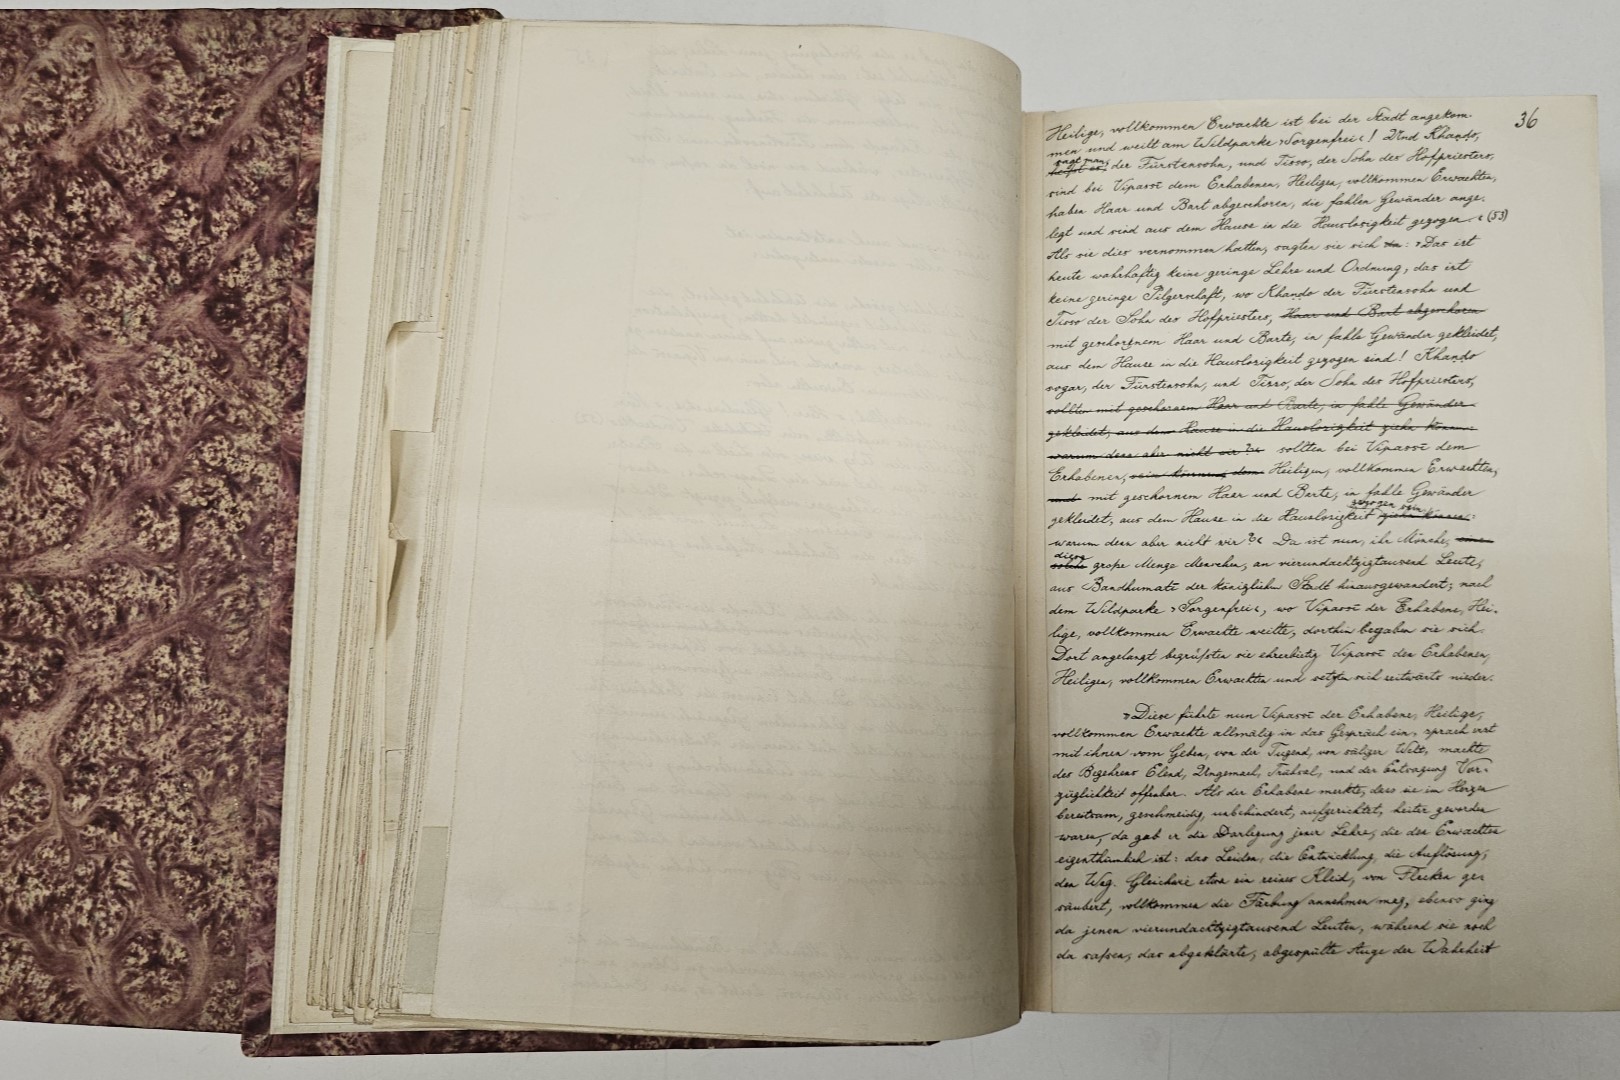 36
Heilige, vollkommen Erwachte ist bei der Stadt angekom-
men und weilt am Wildparke ›Sorgenfrei‹! Und Khaṇḍo,
sagt man,
heißt es, der Fürstensohn, und Tisso, der Sohn des Hofpriesters,
sind bei Vipassī dem Erhabenen, Heiligen, vollkommen Erwachten,
haben Haar und Bart abgeschoren, die fahlen Gewänder ange-
legt und sind aus dem Hause in die Hauslosigkeit gezogen.‹ (53)
Als sie dies vernommen hatten, sagten sie sich : ›Das ist
heute wahrhaftig keine geringe Lehre und Ordnung, das ist
keine geringe Pilgerschaft, wo Khaṇḍo der Fürstensohn und
Tisso der Sohn des Hofpriesters, Haar und Bart abgeschoren
mit geschorenem Haar und Barte, in fahle Gewänder gekleidet,
aus dem Hause in die Hauslosigkeit gezogen sind! Khaṇḍo
sogar, der Fürstensohn, und Tisso, der Sohn des Hofpriesters,
sollten mit geschornem Haar und Barte, in fahle Gewänder
gekleidet, aus dem Hause in die Hauslosigkeit ziehn können:
warum denn aber nicht wir?‹ sollten bei Vipassī dem
Erhabenen, sein können, dem Heiligen, vollkommen Erwachten,
und mit geschornem Haar und Barte, in fahle Gewänder
gezogen sein:
gekleidet, aus dem Hause in die Hauslosigkeit ziehn können:
warum denn aber nicht wir?‹ Da ist nun, ihr Mönche, eine
diese
solche große Menge Menschen, an vierundachtzigtausend Leute,
aus Bandhumatī der königlichen Stadt hinausgewandert; nach
dem Wildparke ›Sorgenfrei‹, wo Vipassī der Erhabene, Hei-
lige, vollkommen Erwachte weilte, dorthin begaben sie sich.
Dort angelangt begrüßten sie ehrerbietig Vipassī den Erhabenen,
Heiligen, vollkommen Erwachten und setzten sich seitwärts nieder.
»Diese führte nun Vipassī der Erhabene, Heilige,
vollkommen Erwachte allmälig in das Gespräch ein, sprach erst
mit ihnen vom Geben, von der Tugend, von säliger Welt, machte
des Begehrens Elend, Ungemach, Trübsal, und der Entsagung Vor-
züglichkeit offenbar. Als der Erhabene merkte, dass sie im Herzen
bereitsam, geschmeidig, unbehindert, aufgerichtet, heiter geworden
waren, da gab er die Darlegung jener Lehre, die den Erwachten
eigenthümlich ist: das Leiden, die Entwicklung, die Auflösung,
den Weg. Gleichwie etwa ein reines Kleid, von Flecken ge-
säubert, vollkommen die Färbung annehmen mag, ebenso ging
da jenen vierundachtzigtausend Leuten, während sie noch
da saßen, das abgeklärte, abgespülte Auge der Wahrheit